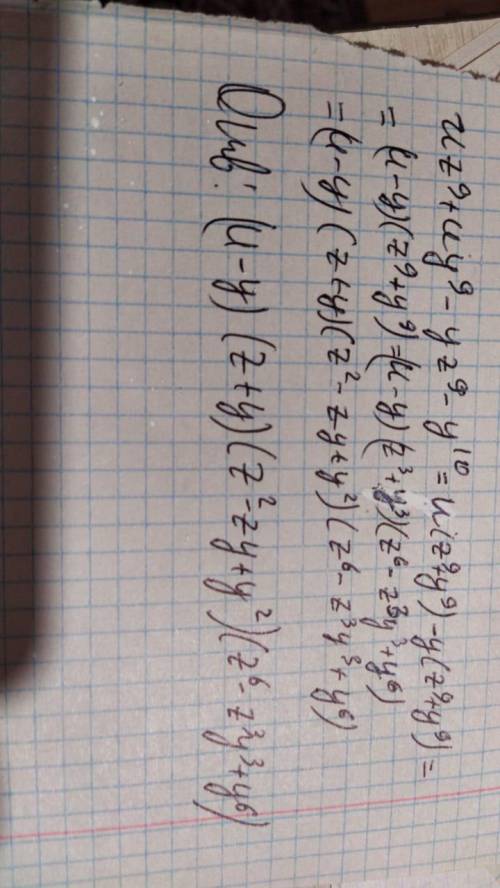 uz⁹+uy⁹-yz⁹-y¹⁰=u(z⁹+y⁹)-y(z⁹+y⁹)=
=(u-y)(z⁹+y⁹)=(u-y)(z³+y³)(z⁶-z³y³+y⁶)
=(u-y)(z+y)(z²-zy+y²)(z⁶-z³y³+y⁶)
Отв: (u-y)(z+y)(z²-zy+y²)(z⁶-z³y³+y⁶)